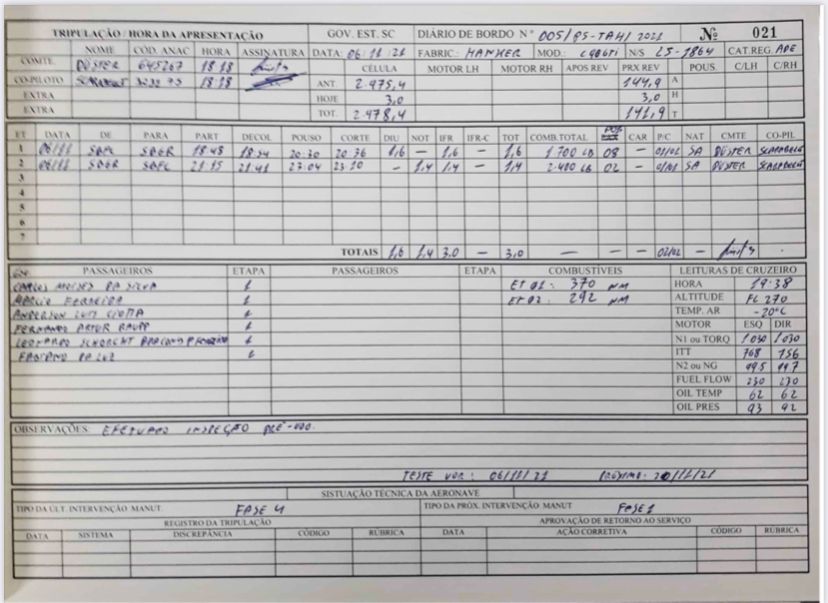 TRIPULAÇÃO / HORA DA APRESENTAÇÃO GOV. EST. SC DIÁRIO DE BORDO Nº 005/PS-TAH/2021 Nº 021
NOME CÓD. ANAC HORA ASSINATURA DATA: 06/11/21 FABRIC.: HAWKER MOD.: N/S CAT.REG. ADE
COMTE DÜSTER 645267 18:18 CÉLULA MOTOR LH MOTOR RH APOS REV PRX REV POUS. C/LH C/RH
CO-PILOTO 18:18 ANT. 2.975,4 144,9 A
EXTRA HOJE 3,0 3,0 H
EXTRA TOT. 2.978,4 141,9 T
ET DATA DE PARA PART DECOL POUSO CORTE DIU NOT IFR IFR-C TOT COMB.TOTAL CAR P/C NAT CMTE CO-PIL
1 06/11 SBFL SBGR 18:48 18:54 20:30 20:36 1,6 — 1,6 — 1,6 1.700 LB 08 — 01/01 SA DÜSTER
2 06/11 SBGR SBFL 21:35 21:41 23:04 23:10 — 1,4 1,4 — 1,4 2.400 LB 02 — 01/01 SA DÜSTER
3
4
5
6
7
TOTAIS 1,6 1,4 3.0 — 3,0 — — — 02/02 —
PASSAGEIROS ETAPA PASSAGEIROS ETAPA COMBUSTÍVEIS LEITURAS DE CRUZEIRO
CARLOS MOISES DA SILVA 1 ET 01: 370 NM HORA 19:38
MARCIO FERREIRA 1 ET 02: 292 NM ALTITUDE FL 270
ANDERSON LUIS 1 TEMP. AR -20°C
FERNANDO ARTUR RAUPP 1 MOTOR ESQ DIR
LEONARDO SCHORCHT 1 N1 ou TORQ 1030 1030
FABIANO DA LUZ 1 ITT 768 756
N2 ou NG 99.5 99.7
FUEL FLOW 230 230
OIL TEMP 62 62
OIL PRES 93 92
OBSERVAÇÕES: EFETUADO INSPEÇÃO PRÉ-VOO.
TESTE VOR: 06/11/21 PRÓXIMO: 20/11/21
SISTUAÇÃO TÉCNICA DA AERONAVE
TIPO DA ÚLT. INTERVENÇÃO MANUT. FASE 4 TIPO DA PRÓX. INTERVENÇÃO MANUT FASE 1
REGISTRO DA TRIPULAÇÃO APROVAÇÃO DE RETORNO AO SERVIÇO
DATA SISTEMA DISCREPÂNCIA CÓDIGO RÚBRICA DATA AÇÃO CORRETIVA CÓDIGO RÚBRICA